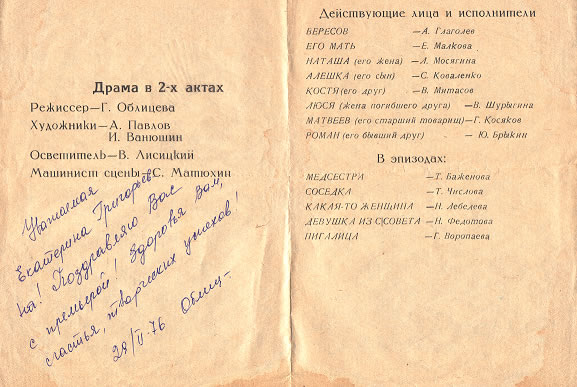 Драма в 2-х актах
Режиссер—Г. Облицева
Художники—А. Павлов
И. Ванюшин
Осветитель—В. Лисицкий
Машинист сцены—С. Матюхин
Уважаемая
Екатерина Григорьев-
на! Поздравляю Вас
с премьерой! Здоровья Вам,
счастья, творческих успехов!
29/II-76 Облиц-
Действующие лица и исполнители
БЕРЕСОВ —А. Глаголев
ЕГО МАТЬ —Е. Малкова
НАТАША (его жена) —Л. Мосягина
АЛЕШКА (его сын) —С. Коваленко
КОСТЯ (его друг) —В. Митасов
ЛЮСЯ (жена погибшего друга) —В. Шурыгина
МАТВЕЕВ (его старший товарищ)—Г. Косяков
РОМАН (его бывший друг) — Ю. Брыкин
В эпизодах:
МЕДСЕСТРА —Т. Баженова
СОСЕДКА —Т. Числова
КАКАЯ-ТО ЖЕНЩИНА —Н. Лебедева
ДЕВУШКА ИЗ ССОВЕТА —Н. Федотова
ПИГАЛИЦА —Г. Воропаева